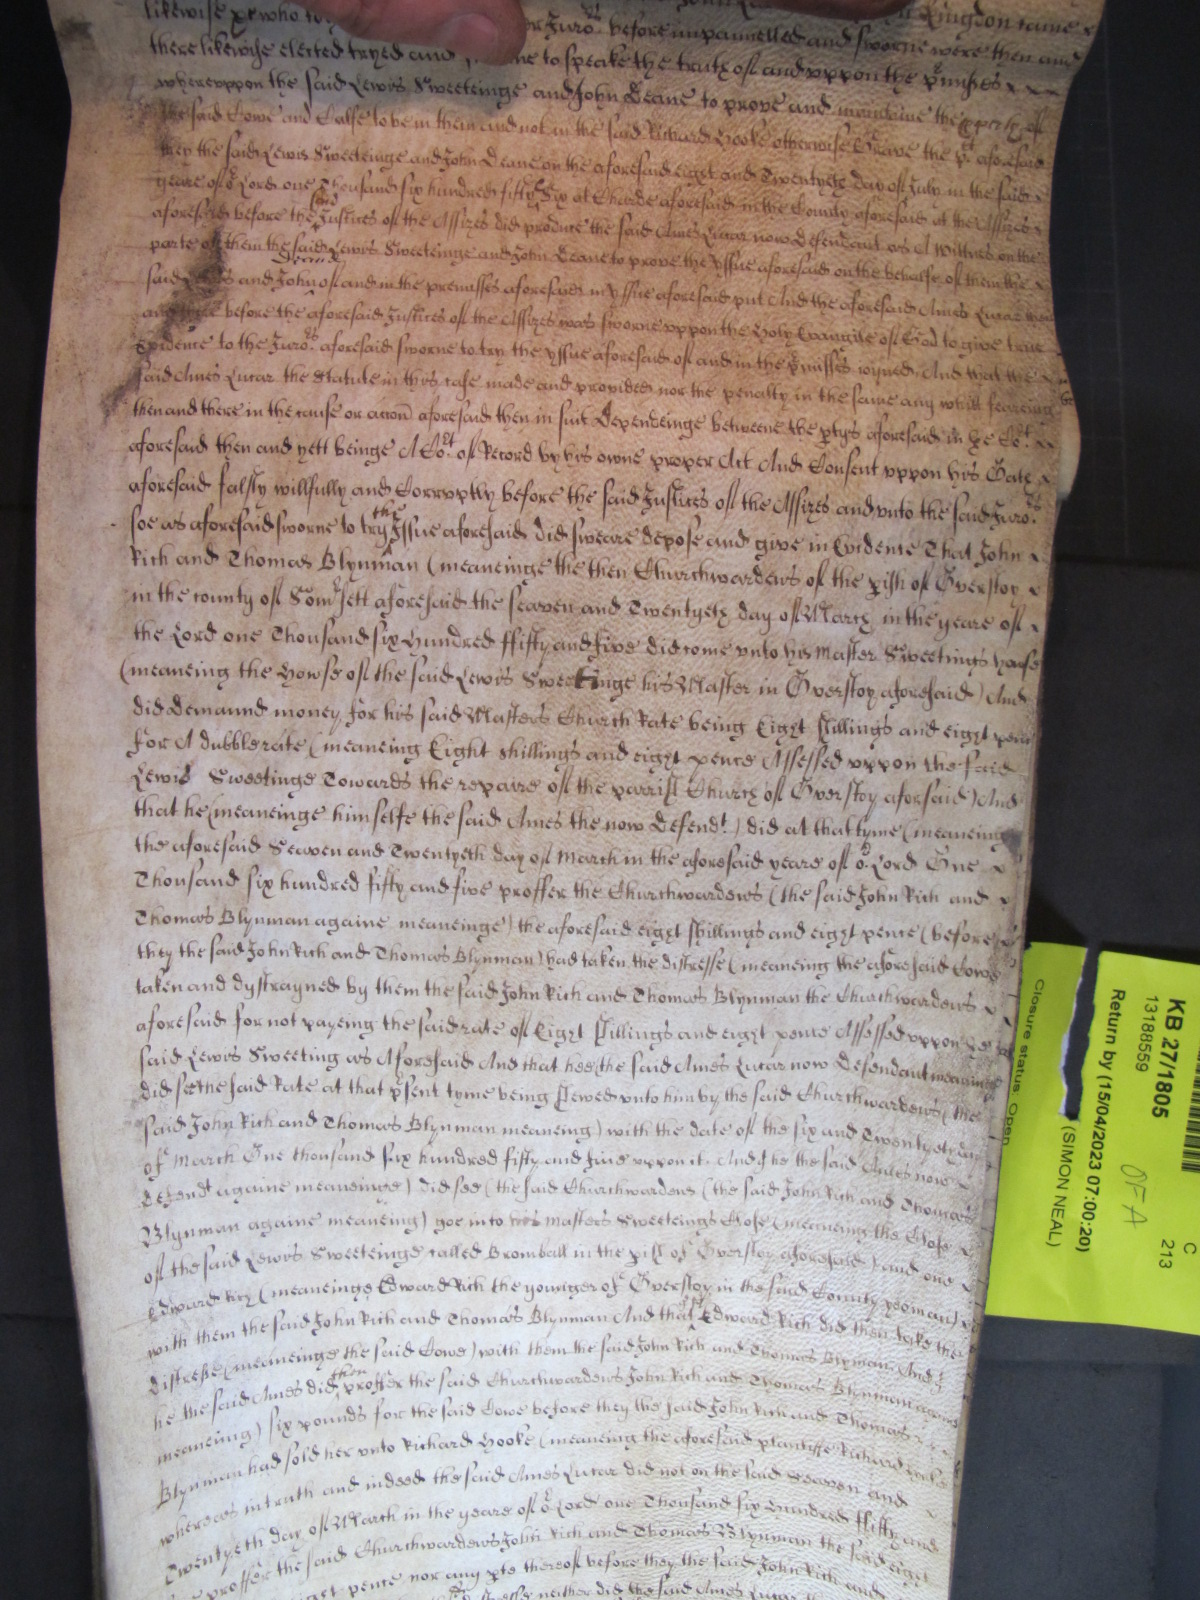 likewise who to John Kingdon came
or Juro.rs before impannelled and sworne were then and
there likewise elected tryed and to speake the truth of and uppon the p'misses
whereuppon the said Lewis Sweeteinge and John Deane to prove and maintaine the of
the said Cowe and Calfe to be in them and not in the said Richard Hooke otherwise Grave the aforesaid
they the said Lewis Sweeteinge and John Deane on the aforesaid eight and Twentyeth day of July in the said
yeare of o.r Lord one Thousand six hundred fifty six at Charde aforesaid in the County aforesaid at the Assizes
aforesaid before the said Justices of the Assizes did produce the said Ames Lucar now Defendant as A Wittnes on the
parte of them the said Lewis Sweeteinge and John Deane to prove the yssue aforesaid on the behalfe of them the
said Lewis and John Deane of and in the premisses aforesaid in yssue aforesaid put And the aforesaid Ames Lucar then
and there before the aforesaid Justices of the Assizes was sworne uppon the Holy Evangile of God to give true
Evidence to the Juro.rs aforesaid sworne to try the yssue aforesaid of and in the p'misses joyned. And that the
said Ames Lucar the Statute in this case made and provided nor the penalty in the same any whitt feareing
then and there in the cause or accon aforesaid then in suit Dependeinge betweene the ptys aforesaid in the Co.rt
aforesaid then and yett beinge A Co.rt of Record by his owne proper Act And Consent uppon his Oath
aforesaid falsly willfully and Corruptly before the said Justices of the Assizes and unto the said Juro.rs
soe as aforesaid sworne to try the Issue aforesaid did sweare depose and give in Evidence That John
Rich and Thomas Blynman (meaneinge the then Churchwardens of the pish of Overstoy
in the county of Som'sett aforesaid the seaven and Twentyeth day of March in the yeare of
the Lord one Thousand six Hundred ffifty and five did come unto his Master Sweetings house
(meaneing the Howse of the said Lewis Sweeteinge his Master in Overstoy aforesaid) And
did Demaund money for his said Masters Church Rate being Eight shillings and eight pence
for A dubble rate (meaneing Eight shillings and eight pence Assessed uppon the said
Lewis Sweetinge Towards the repaire of the parrish Church of Overstoy aforsaid) And
that he (meaneinge himselfe the said Ames the now Defend.t) did at that tyme (meaneing
the aforesaid Seaven and Twentyeth day of March in the aforesaid yeare of o.r Lord One
Thousand six hundred fifty and five proffer the Churchwardens (the said John Rich and
Thomas Blynman againe meaneinge) the aforesaid eight shillings and eight pence (before
they the said John Rich and Thomas Blynman) had taken the distresse (meaneing the aforesaid Cowe
taken and dystrayned by them the said John Rich and Thomas Blynman the Churchwardens
aforesaid for not payeing the said rate of Eight shillings and eight pence Assessed uppon the
said Lewis Sweeting as Aforesaid And that hee (the said Ames Lucar now Defendant meaninge
did see the said Rate at that p'sent tyme being shewed unto him by the said Churchwardens (the
said John Rich and Thomas Blynman meaneing) with the date of the six and Twentyety day
of March One thousand six hundred fifty and five uppon it. And he the said Ames now
Defend.t againe meaneinge) did see (the said Churchwardens (the said John Rich and Thomas
Blynman againe meaneing) goe into his Masters Sweeteings Close (meaneing the Close
of the said Lewis Sweeteinge called Bromball in the pish of Overstoy aforesaid) and one
Edward Rich (meaneinge Edward Rich the younger of Overstoy in the said County yeoman)
with them the said John Rich and Thomas Blynman And that Edward Rich did then take the
distresse (meaneinge the said Cowe) with them the said John Rich and Thomas Blynman And
he the said Ames did then proffer the said Churchwardens John Rich and Thomas Blynman againe
meaneing) six pounds for the said Cowe before they the said John Rich and Thomas
Blynman had sold her unto Richard Hooke (meaneing the aforesaid plantiffe Richard Hooke
whereas in truth and indeed the said Ames Lucar did not on the said Seaven and
Twentyeth day of March in the yeare of o.r Lord one Thousand six Hundred ffifty and
proffer the said Churchwardens John Rich and Thomas Blynman the said eight
pence nor any pte thereof before they the said John Rich and
neither did the said Ames Lucar
KB 27/1805
13188559
Return by (15/04/2023 07:00:20)
(SIMON NEAL)
Closure status: Open
C
213
OF A